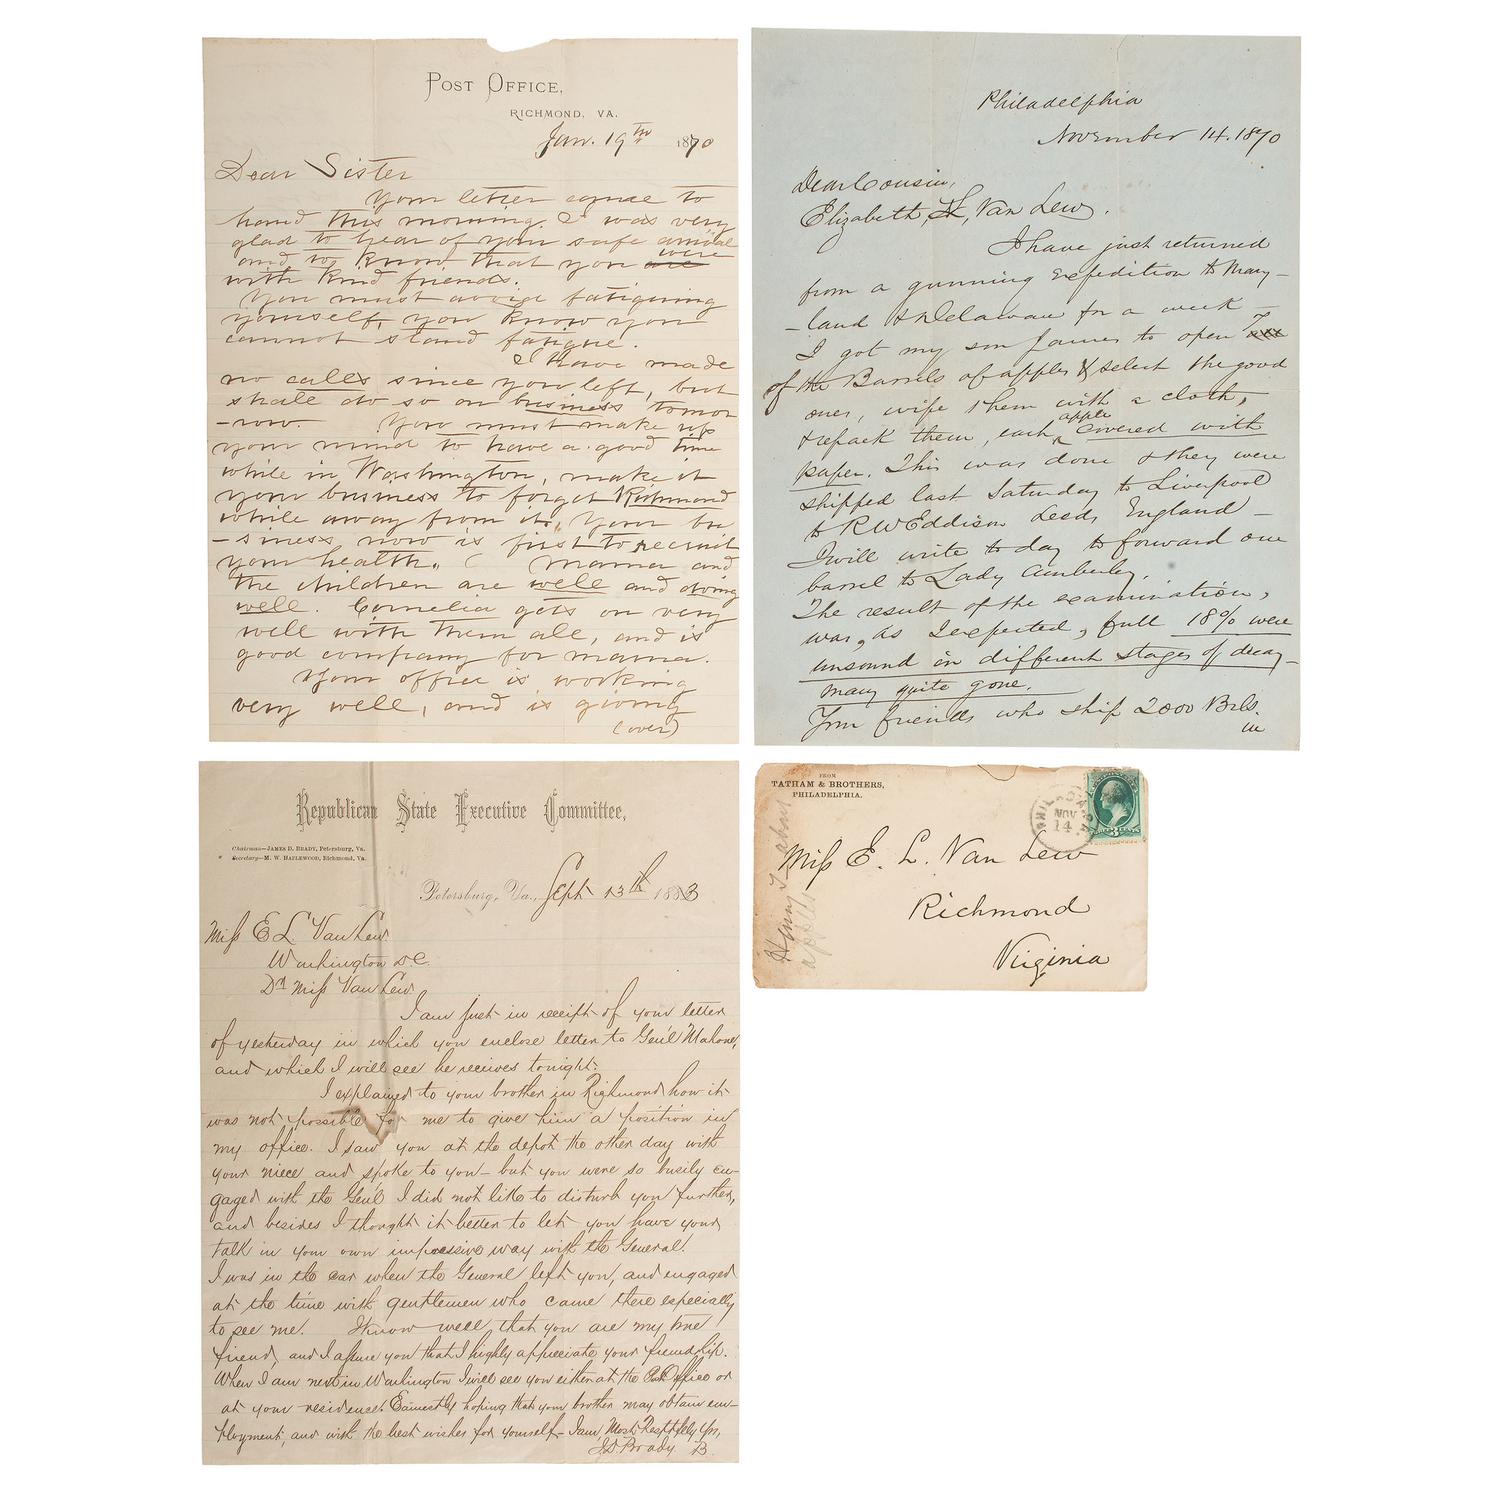 Post Office,
Richmond, Va.
Jan. 19th 1870
Dear Sister
Your letter came to
hand this morning. I was very
glad to hear of your safe arrival
and to know that you were
with kind friends.
You must avoide fatiguing
yourself, you know you
cannot stand fatigue.
I have made
no calls since you left, but
shall do so on business tomor
-row. You must make up
your mind to have a good time
while in Washington, make it
your business to forget Richmond
while away from it, Your bu
-siness now is first to recruit
your health. Mama and
the children are well and doing
well. Cornelia gets on very
well with them all, and is
good company for mama.
Your office is working
very well, and is giving
(over)
Philadelphia
November 14. 1870
Dear Cousin,
Elizabeth, L, Van Lew.
I have just returned
from a gunning expedition to Mary-
-land & Delaware for a week -
I got my son James to open
of the Barrels of apples & select the good
ones, wipe them with a cloth,
& repack them, each apple covered with
paper. This was done & they were
shipped last Saturday to Liverpool
to R W Eddison Leeds, England -
I will write to day to forward one
barrel to Lady Amberley.
The result of the examination,
was, as I expected, full 18% were
unsound in different stages of decay -
many quite gone.
Your friends who ship 2000 Brls.
in
Republican State Executive Committee,
Chairman—JAMES D. BRADY, Petersburg, Va.
Secretary—M. W. HAZLEWOOD, Richmond, Va.
Petersburg, Va., Sept 13th 1883
Miss E L Van Lew
Washington D.C.
Dr Miss Van Lew
I am just in receipt of your letter
of yesterday in which you enclose letter to Gen'l Mahone,
and which I will see he receives tonight.
I explained to your brother in Richmond how it
was not possible for me to give him a position in
my office. I saw you at the depot the other day with
your niece and spoke to you - but you were so busily en-
gaged with the Gen'l I did not like to disturb you further,
and besides I thought it better to let you have your
talk in your own impressive way with the General.
I was in the car when the General left you, and engaged
at the time with gentlemen who came there especially
to see me. I know well, that you are my true
friend, and I assure you that I highly appreciate your friendship.
When I am next in Washington I will see you either at the Post Office or
at your residence. Earnestly hoping that your brother may obtain em-
ployment, and with the best wishes for yourself - I am, Most Respectfully Yrs,
J.D. Brady
FROM
TATHAM & BROTHERS,
PHILADELPHIA.
NOV
14
Miss E. L. Van Lew
Richmond
Virginia
Henry T about
apples